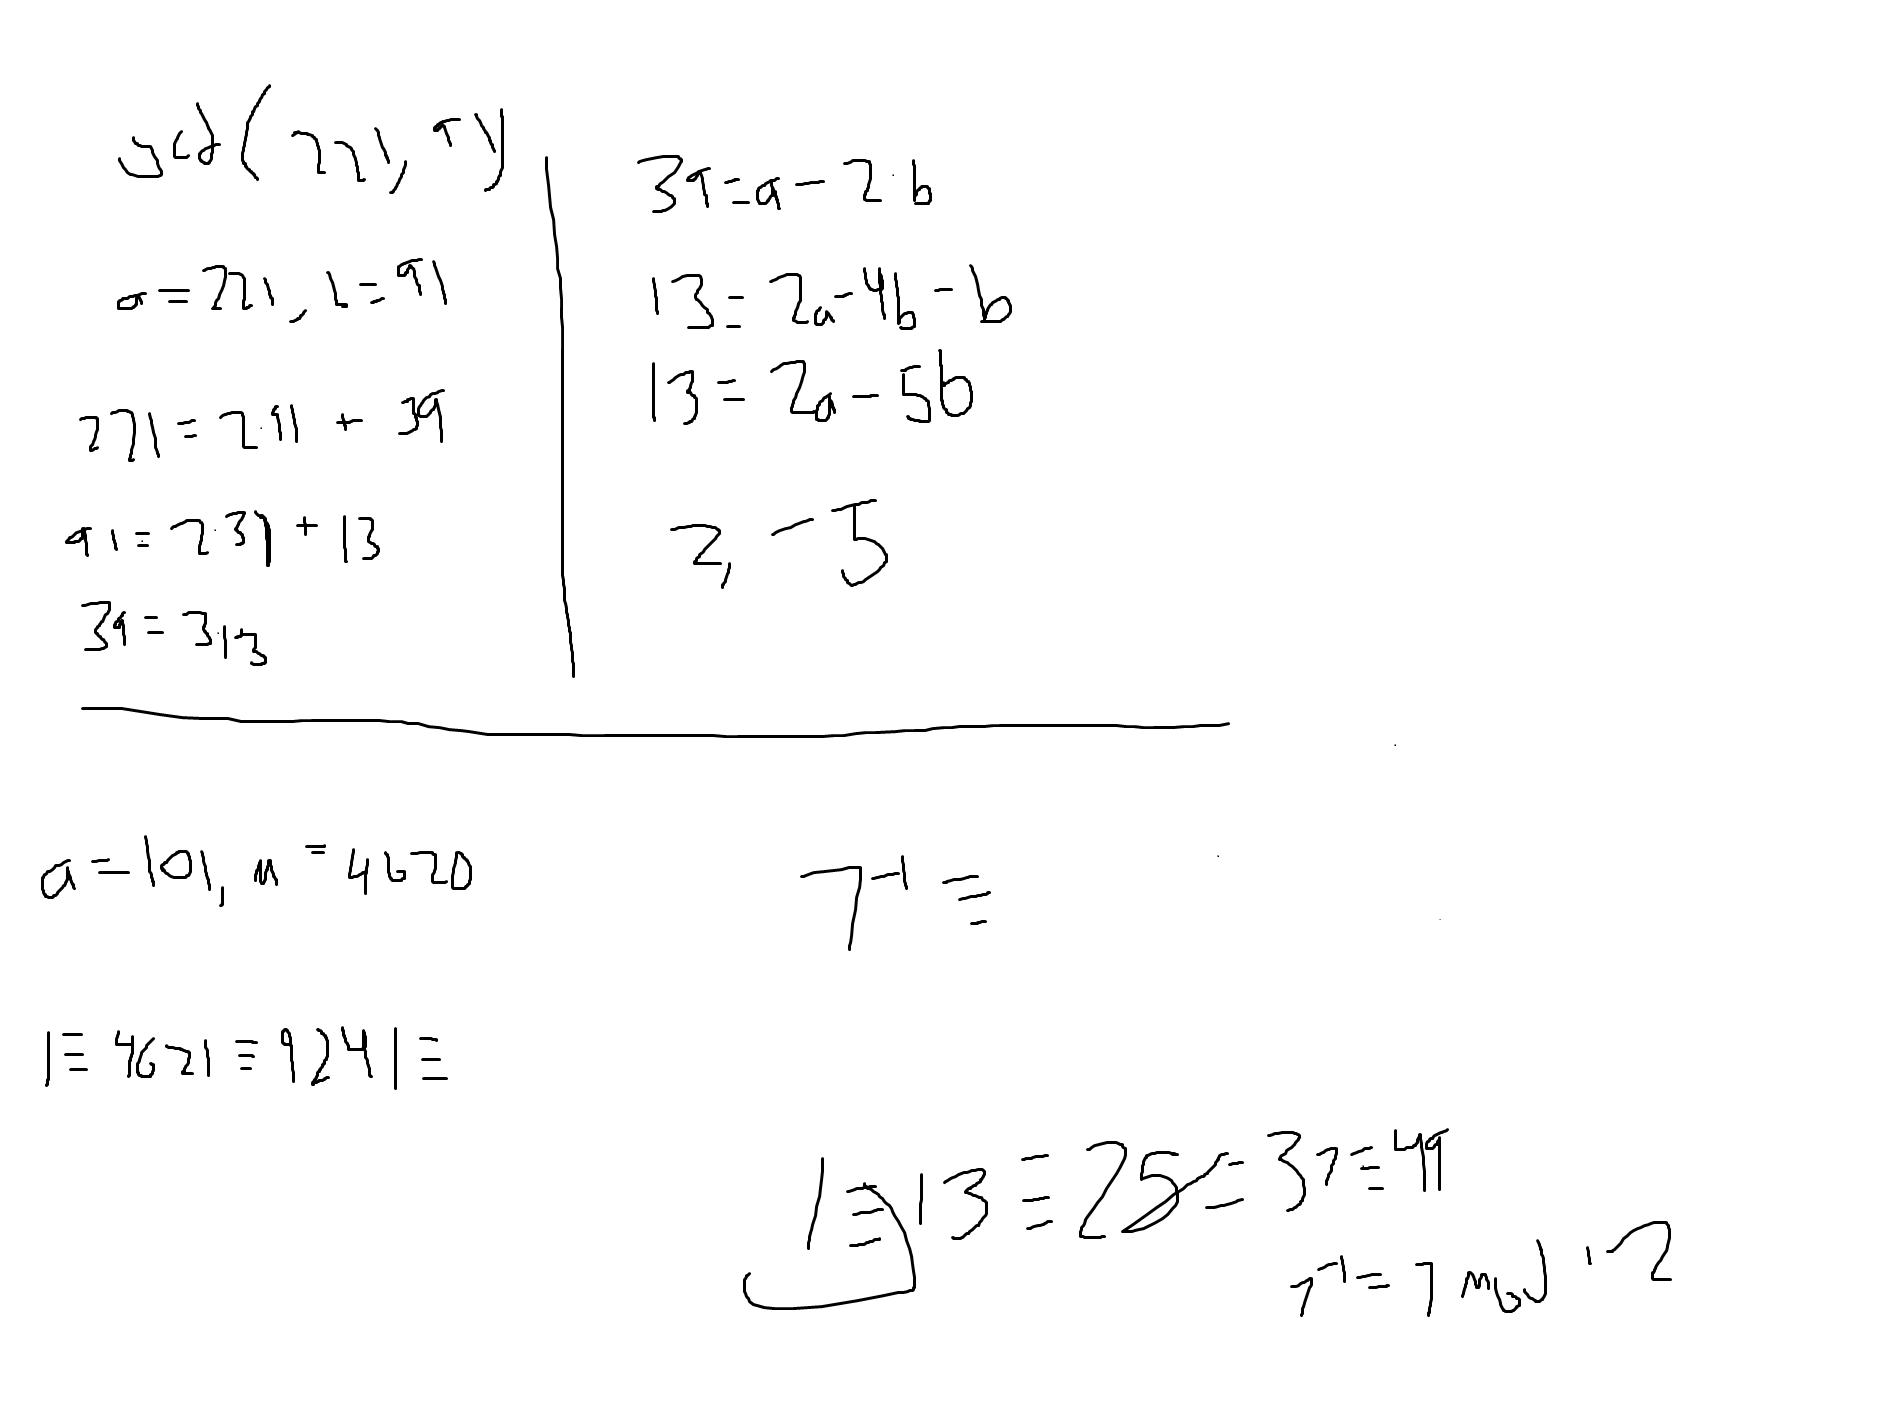 gcd(221, 91)
a = 221, b = 91
221 = 2·91 + 39
91 = 2·39 + 13
39 = 3·13
39 = a - 2·b
13 = 2a - 4b - b
13 = 2a - 5b
2, -5
a = 101, m = 4620
7⁻¹ ≡
1 ≡ 4621 ≡ 9241 ≡
1 ≡ 13 ≡ 25 ≡ 37 ≡ 49
7⁻¹ = 7 mod 12